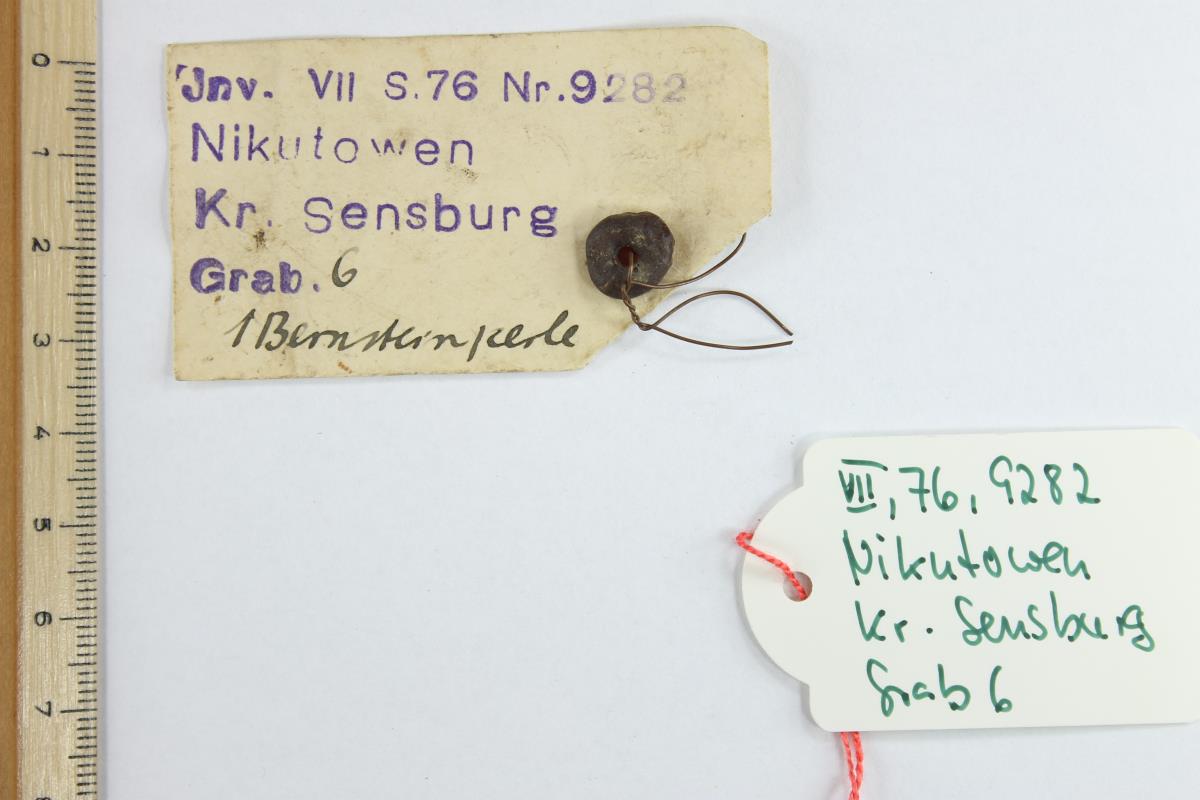 Jnv. VII S.76 Nr.9282
Nikutowen
Kr. Sensburg
Grab. 6
1 Bernsteinperle
VII, 76, 9282
Nikutowen
Kr. Sensburg
Grab 6
0
1
2
3
4
5
6
7
8